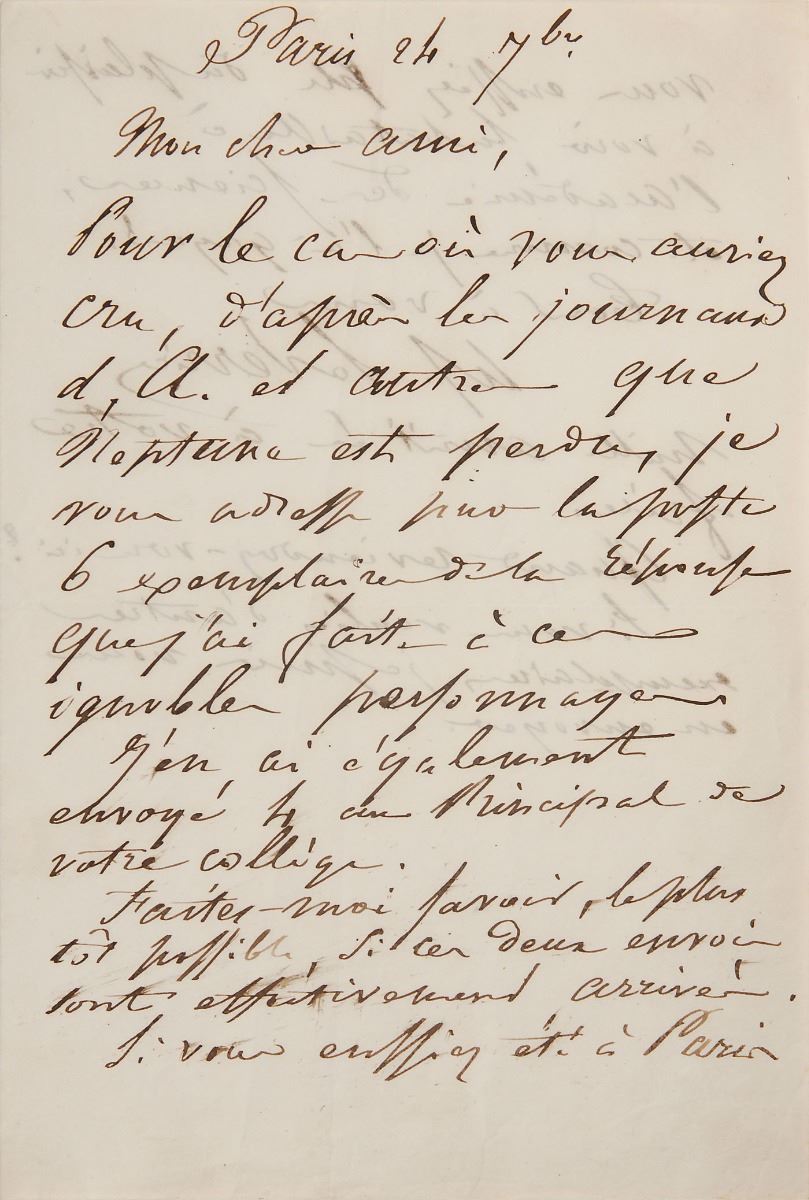 Paris 24 7bre
Mon cher ami,
Pour le cas où vous auriez
cru, d'après les journaux
d, A. et autres que
Neptune est perdu, je
vous adresse par la poste
6 exemplaires de la réponse
que j'ai faite à ces
ignobles personnages.
J'en ai également
envoyé 4 au Principal de
votre collège.
Faites-moi savoir, le plus
tôt possible, si ces deux envois
sont effectivement arrivés.
Si vous eussiez été à Paris